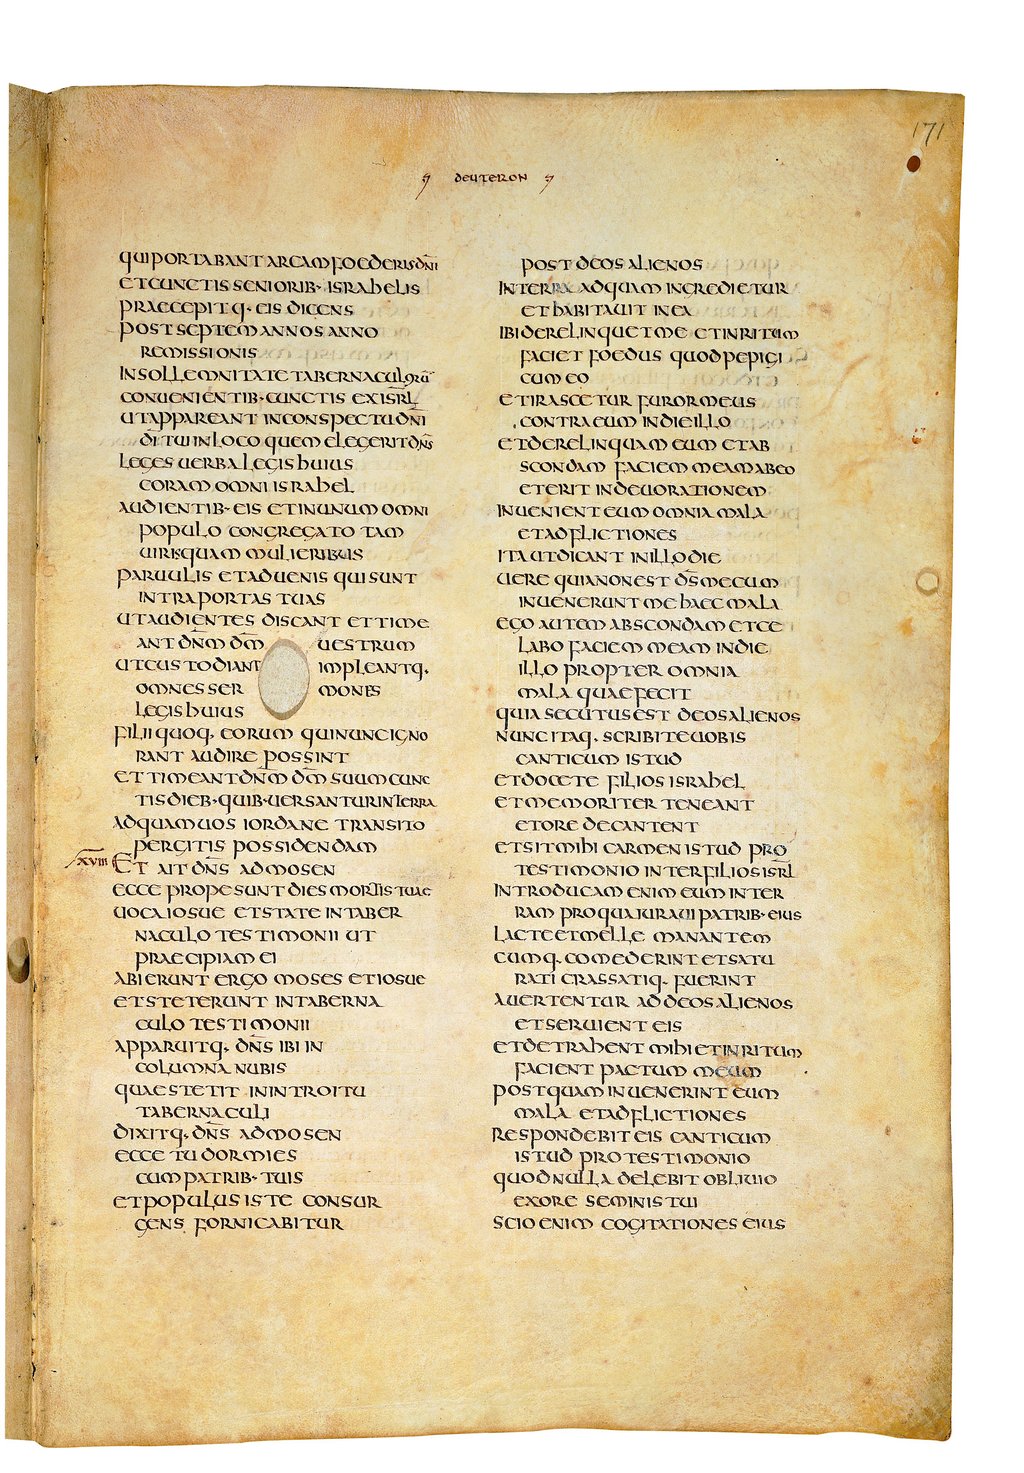 171
DEUTERON
QUI PORTABANT ARCAM FOEDERIS DN̄I
ET CUNCTIS SENIORIB· ISRAHELIS
PRAECEPITQ· EIS DICENS
POST SEPTEM ANNOS ANNO
REMISSIONIS
IN SOLLEMNITATE TABERNACULORŪ
CONUENIENTIB· CUNCTIS EX ISRL̄
UT APPAREANT IN CONSPECTU DN̄I
DĪ TUI IN LOCO QUEM ELEGERIT DN̄S
LEGES UERBA LEGIS HUIUS
CORAM OMNI ISRAHEL
AUDIENTIB· EIS ET IN UNUM OMNI
POPULO CONGREGATO TAM
UIRIS QUAM MULIERIBUS
PARUULIS ET ADUENIS QUI SUNT
INTRA PORTAS TUAS
UT AUDIENTES DISCANT ET TIME
ANT DN̄M DM̄ UESTRUM
UT CUSTODIANT IMPLEANTQ·
OMNES SERMONES
LEGIS HUIUS
FILII QUOQ· EORUM QUI NUNC IGNO
RANT AUDIRE POSSINT
ET TIMEANT DN̄M DM̄ SUUM CUNC
TIS DIEB· QUIB· UERSANTUR IN TERRA
AD QUAM UOS IORDANE TRANSITO
PERGITIS POSSIDENDAM
XVIII ET AIT DN̄S AD MOSEN
ECCE PROPE SUNT DIES MORTIS TUAE
UOCA IOSUE ET STATE IN TABER
NACULO TESTIMONII UT
PRAECIPIAM EI
ABIERUNT ERGO MOSES ET IOSUE
ET STETERUNT IN TABERNA
CULO TESTIMONII
APPARUITQ· DN̄S IBI IN
COLUMNA NUBIS
QUAE STETIT IN INTROITU
TABERNACULI
DIXITQ· DN̄S AD MOSEN
ECCE TU DORMIES
CUM PATRIB· TUIS
ET POPULUS ISTE CONSUR
GENS FORNICABITUR
POST DEOS ALIENOS
IN TERRA AD QUAM INGREDIETUR
ET HABITAUIT IN EA
IBI DERELINQUET ME ET INRITUM
FACIET FOEDUS QUOD PEPIGI
CUM EO
ET IRASCETUR FUROR MEUS
CONTRA EUM IN DIE ILLO
ET DERELINQUAM EUM ET AB
SCONDAM FACIEM MEAM AB EO
ET ERIT IN DEUORATIONEM
INUENIENT EUM OMNIA MALA
ET ADFLICTIONES
ITA UT DICANT IN ILLO DIE
UERE QUIA NON EST DS̄ MECUM
INUENERUNT ME HAEC MALA
EGO AUTEM ABSCONDAM ET CE
LABO FACIEM MEAM IN DIE
ILLO PROPTER OMNIA
MALA QUAE FECIT
QUIA SECUTUS EST DEOS ALIENOS
NUNC ITAQ· SCRIBITE UOBIS
CANTICUM ISTUD
ET DOCETE FILIOS ISRAHEL
ET MEMORITER TENEANT
ET ORE DECANTENT
ET SIT MIHI CARMEN ISTUD PRO
TESTIMONIO INTER FILIOS ISRL̄
INTRODUCAM ENIM EUM IN TER
RAM PRO QUA IURAUI PATRIB· EIUS
LACTE ET MELLE MANANTEM
CUMQ· COMEDERINT ET SATU
RATI CRASSATIQ· FUERINT
AUERTENTUR AD DEOS ALIENOS
ET SERUIENT EIS
ET DETRAHENT MIHI ET INRITUM
FACIENT PACTUM MEUM
POSTQUAM INUENERINT EUM
MALA ET ADFLICTIONES
RESPONDEBIT EIS CANTICUM
ISTUD PRO TESTIMONIO
QUOD NULLA DELEBIT OBLIUIO
EX ORE SEMINIS TUI
SCIO ENIM COGITATIONES EIUS